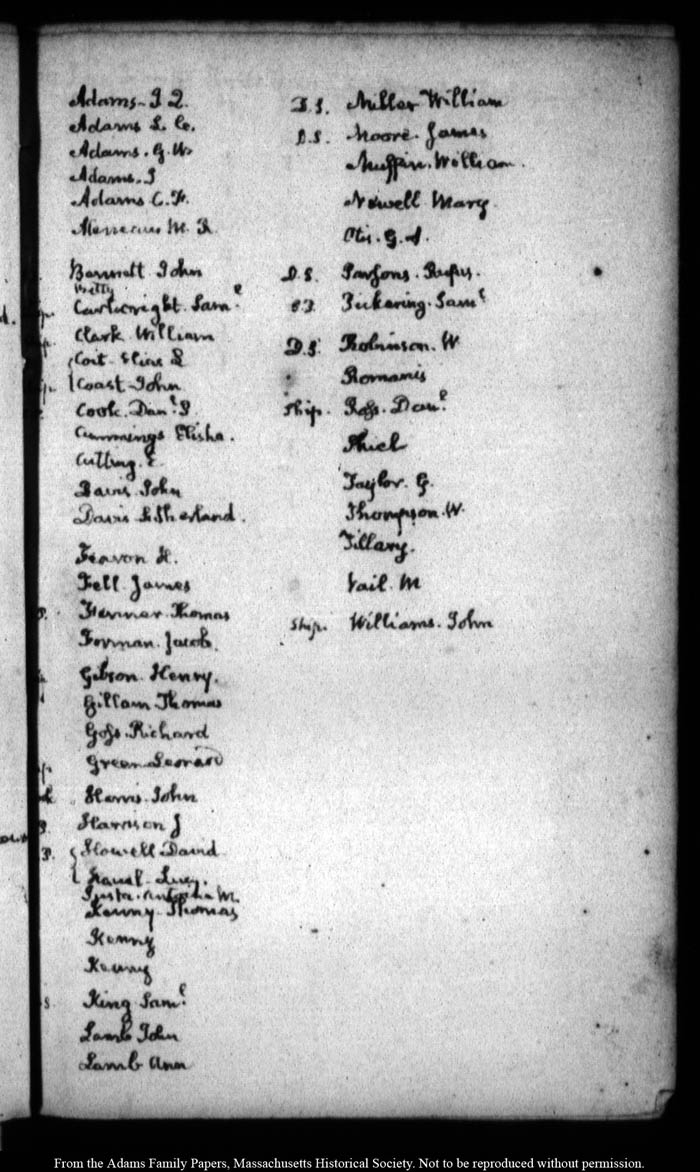 Adams. J Q.
Adams L. C.
Adams. G. W.
Adams. J
Adams C. F.
M. R.
Bennett John
Betty
Cartwright Sam.l
Clark William
Coit
Coast John
Cook. Dan.l P.
Cummings Elisha.
Cutting. E.
Davis John
Davis
H.
Fell James
Thomas
Forman. Jacob.
Gibson. Henry.
Gillam Thomas
Goss. Richard
Green Leonard
Harris. John
Harrison J
P. { Howell David
Lucy.
Justa. Antonia M.
Kenny Thomas
Kenny
Kenny
S. King Sam.l
Lamb John
Lamb Ann
D.S. Miller William
D.S. Moore. James
Muffin. William.
Newell Mary.
Otis. G. A.
D.S. Parsons. Rufus.
Pickering. Sam.l
D.S. Robinson. W
Romanis
Ship. Ross. Dan.l
Taylor. G.
Thompson. W.
Tillary.
Vail. M
Ship. Williams. John
From the Adams Family Papers, Massachusetts Historical Society. Not to be reproduced without permission.